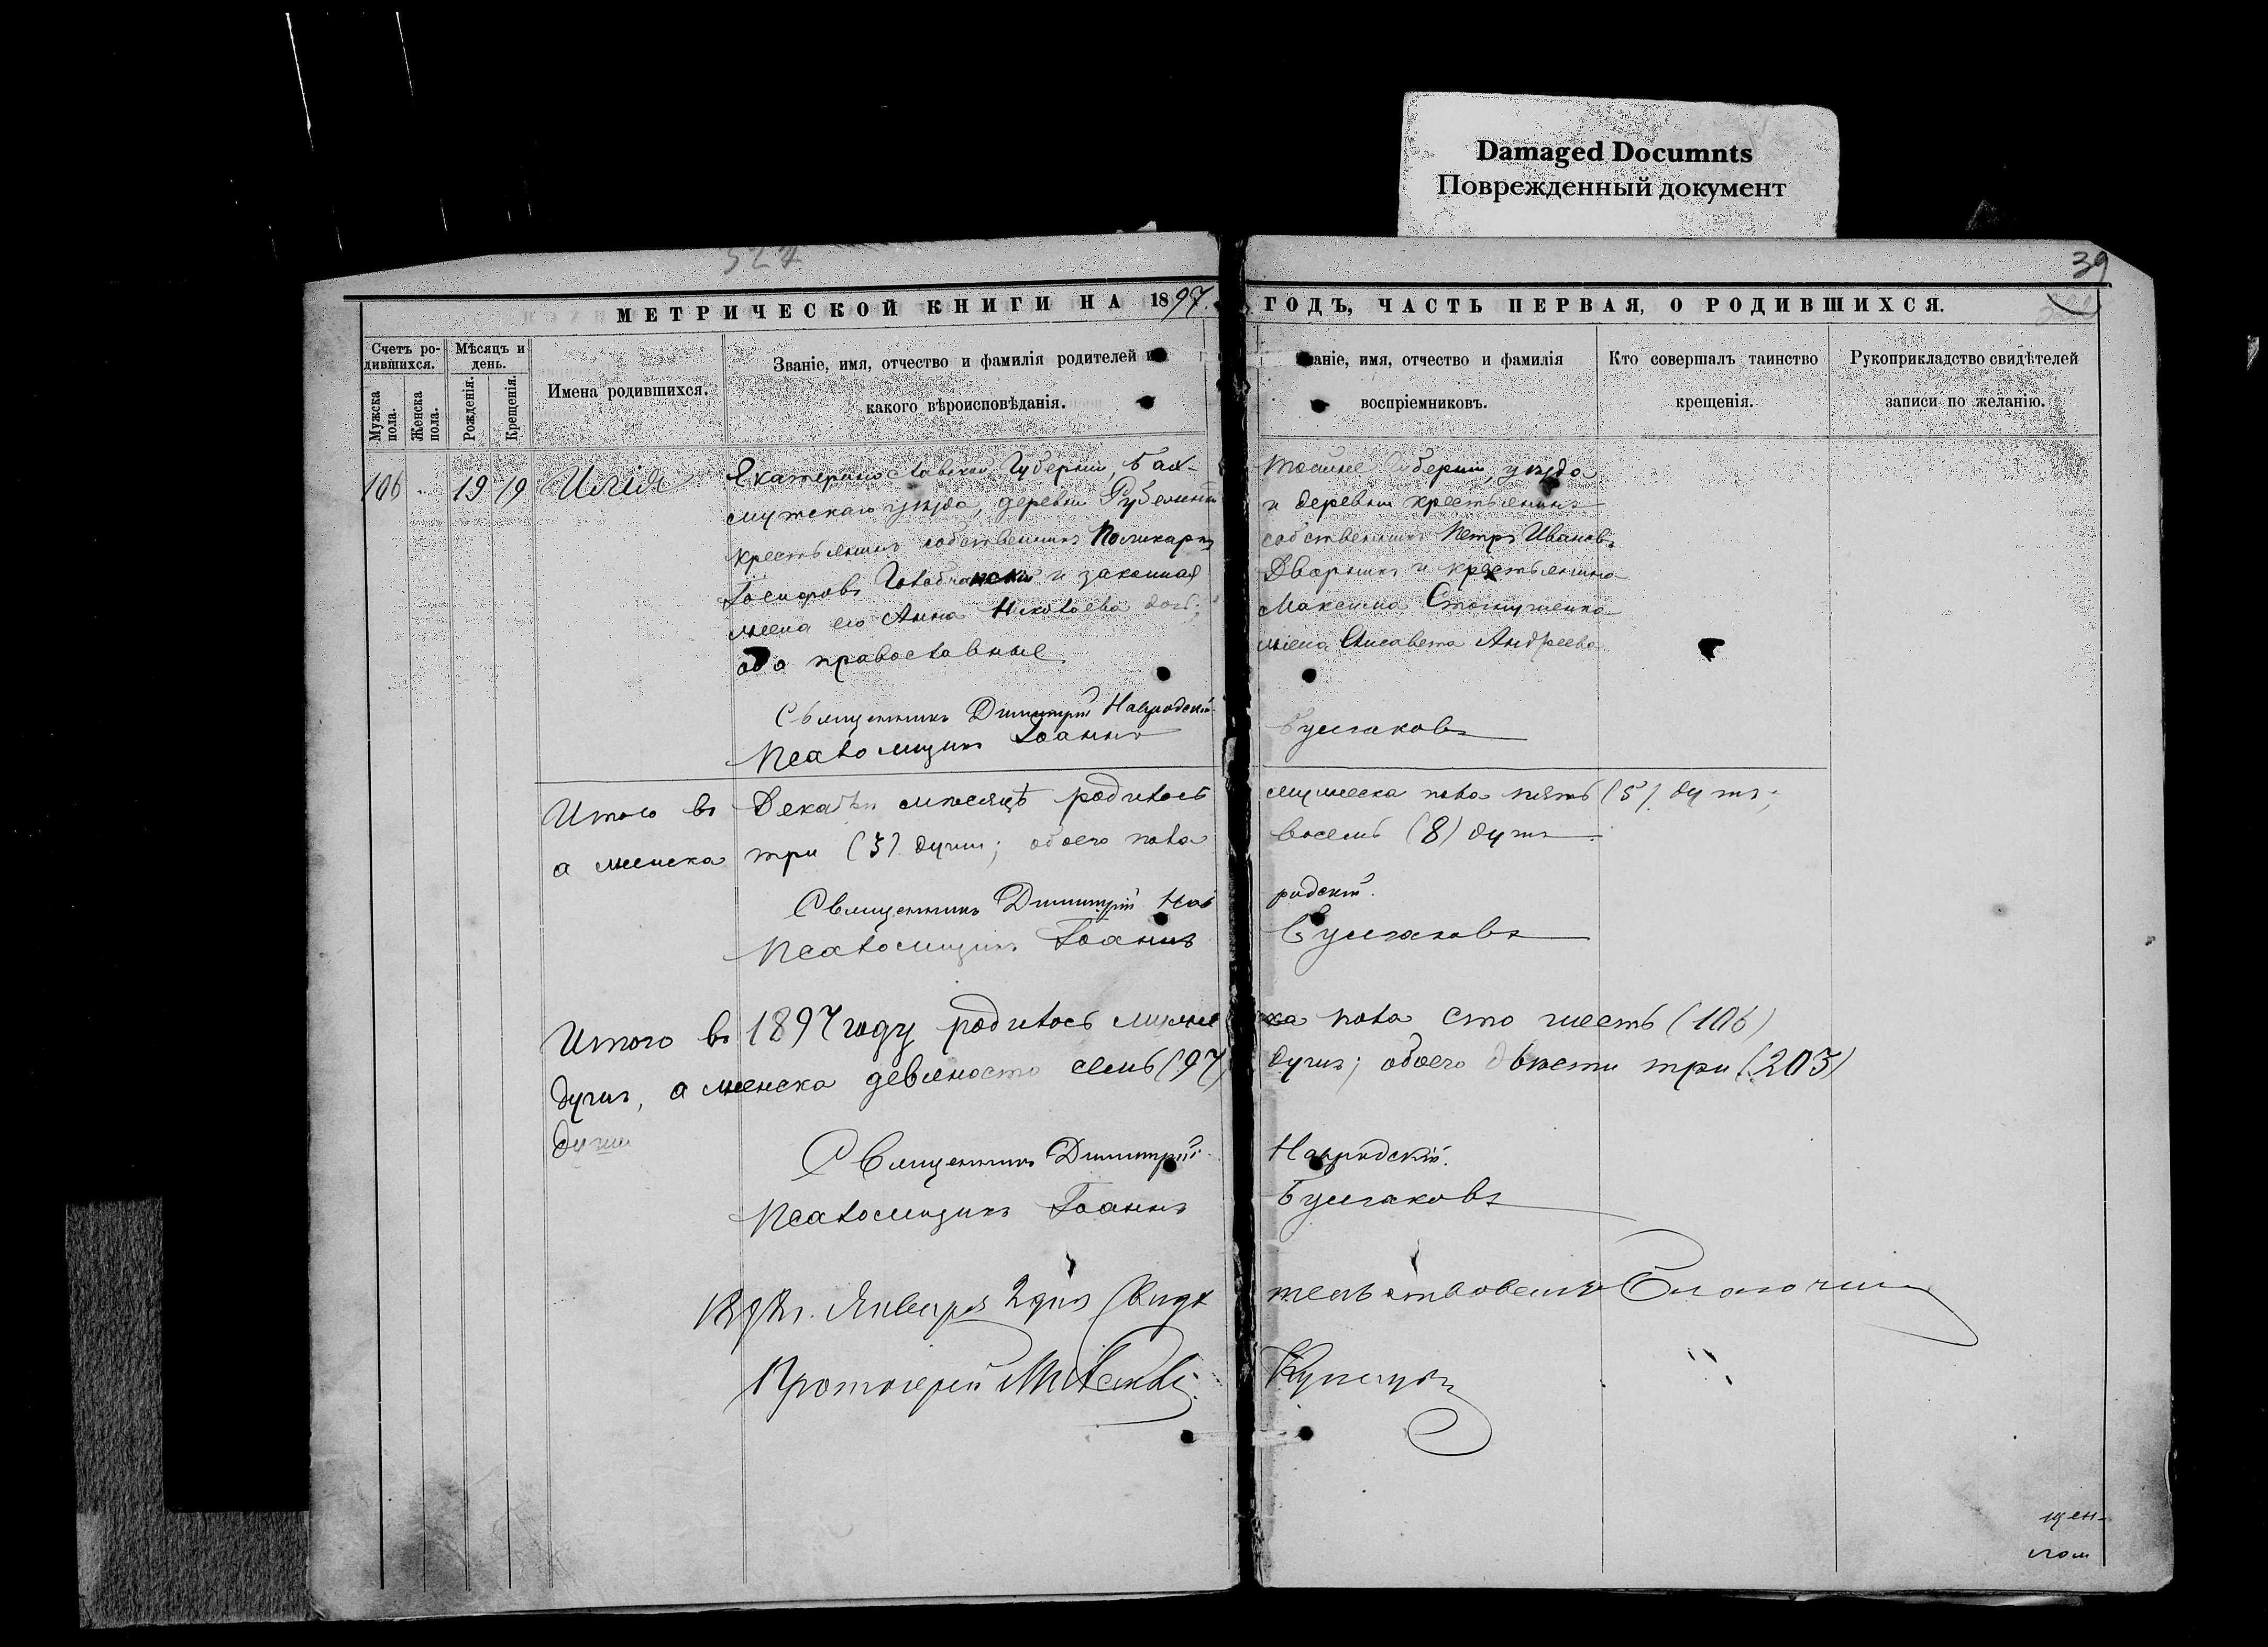 Damaged Documnts
Поврежденный документ
327
39
МЕТРИЧЕСКОЙ КНИГИ НА 1897.
ГОДЪ, ЧАСТЬ ПЕРВАЯ, О РОДИВШИХСЯ.
Счетъ ро-
дившихся.
Мужска
пола.
Женска
пола.
Мѣсяцъ и
день.
Рожденія.
Крещенія.
Имена родившихся.
Званіе, имя, отчество и фамилія родителей и
какого вѣроисповѣданія.
ваніе, имя, отчество и фамилія
воспріемниковъ.
Кто совершалъ таинство
крещенія.
Рукоприкладство свидѣтелей
записи по желанію.
106
19
19
Илія
Екатеринославской Губерніи, Бах-
мутскаго уѣзда, деревни
крестьянинъ собственникъ Поликарпъ
Іосифовъ и законная
жена его Анна Николаева
оба православные.
Священникъ Димитрій Навродскій
Псаломщикъ Іоаннъ
тойже Губерніи, уѣзда
и деревни крестьянинъ
собственникъ Петръ Ивановъ
Дворникъ и крестьянина
Максима
жена Елисавета Андреева
Булгаковъ
Итого въ Декабрѣ мѣсяцѣ родилось мужеска пола пять (5) душъ;
а женска три (3) души; обоего пола восемь (8) душъ
Священникъ Димитрій Нав родскій.
Псаломщикъ Іоаннъ Булгаковъ
Итого въ 1897 году родилось мужес ка пола сто шесть (106)
душъ, а женска девяносто семь (97) душъ; обоего двѣсти три (203)
души
Священникъ Димитрій Навродскій.
Псаломщикъ Іоаннъ Булгаковъ
1898 г. Января 2 дня Свидѣ тельствовалъ Благочин
Протоіерей